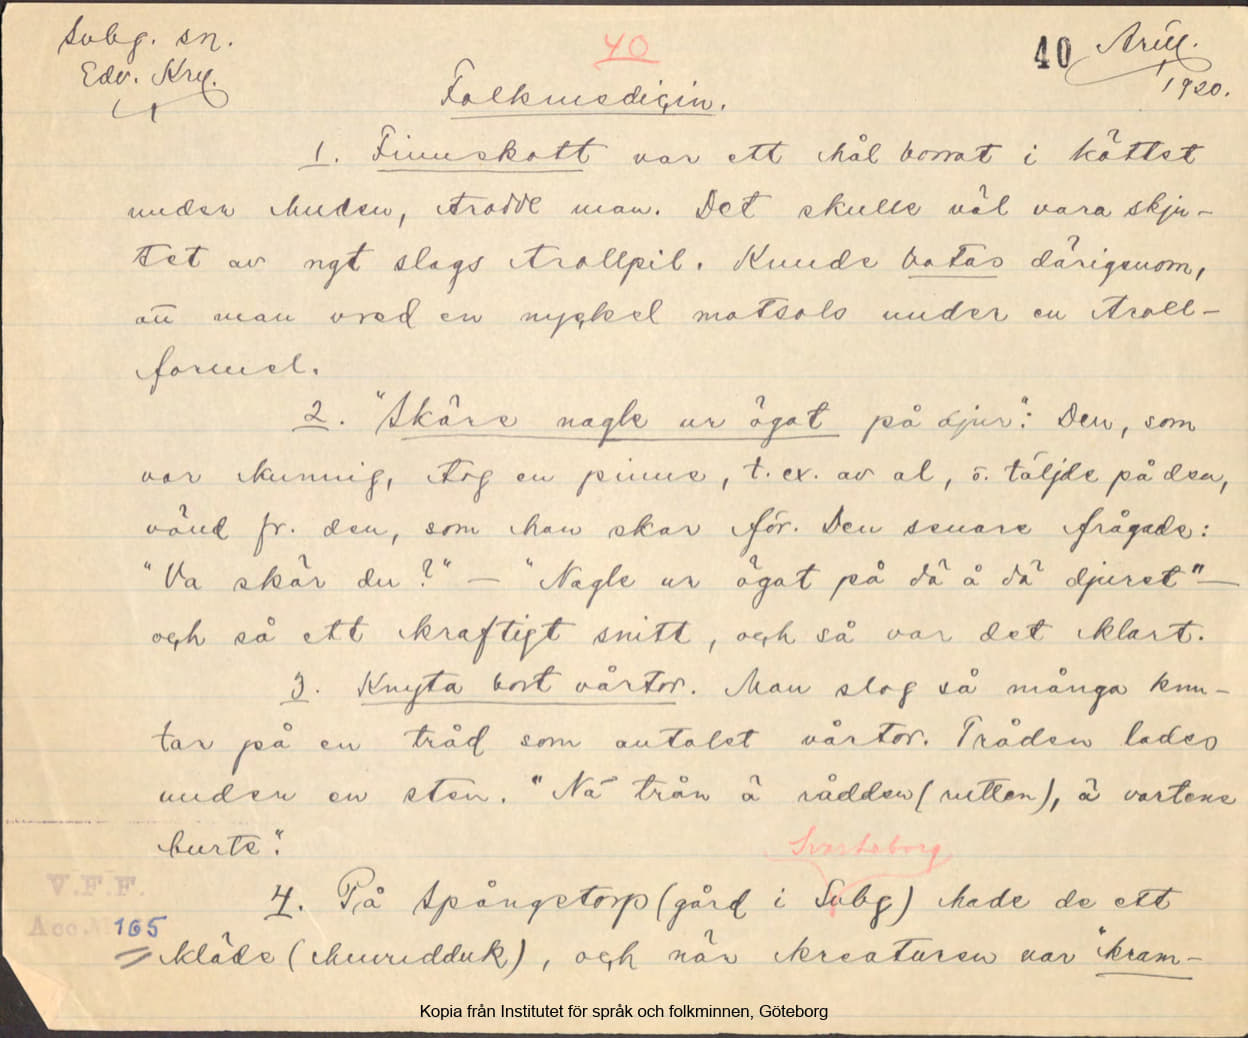 Svbg. sn.
Edv. Krel.
40
40 Arill.
1920.
Folkmedicin.
1. Finnskott var ett hål borrat i köttet
under huden, trodde man. Det skulle väl vara skju-
tet av ngt slags trollpil. Kunde botas därigenom,
att man vred en nyckel motsols under en troll-
formel.
2. "Skäre nagle ur ögat på djur": Den, som
var kunnig, tog en pinne, t. ex. av al, o. täljde på den,
vänd fr. den, som han skar för. Den senare frågade:
"Va skär du?" — "Nagle ur ögat på dä å dä djuret" —
och så ett kraftigt snitt, och så var det klart.
3. Knyta bort vårtor. Man slog så många knu-
tar på en tråd som antalet vårtor. Tråden lades
under en sten. "Nä trån ä rådden (rutten), ä vortene
burte".
Svarteborg
4. På Spångetorp (gård i Svbg) hade de ett
V.F.F.
Acc. 165
kläde (huvudduk), och när kreaturen var "kram-
Kopia från Institutet för språk och folkminnen, Göteborg